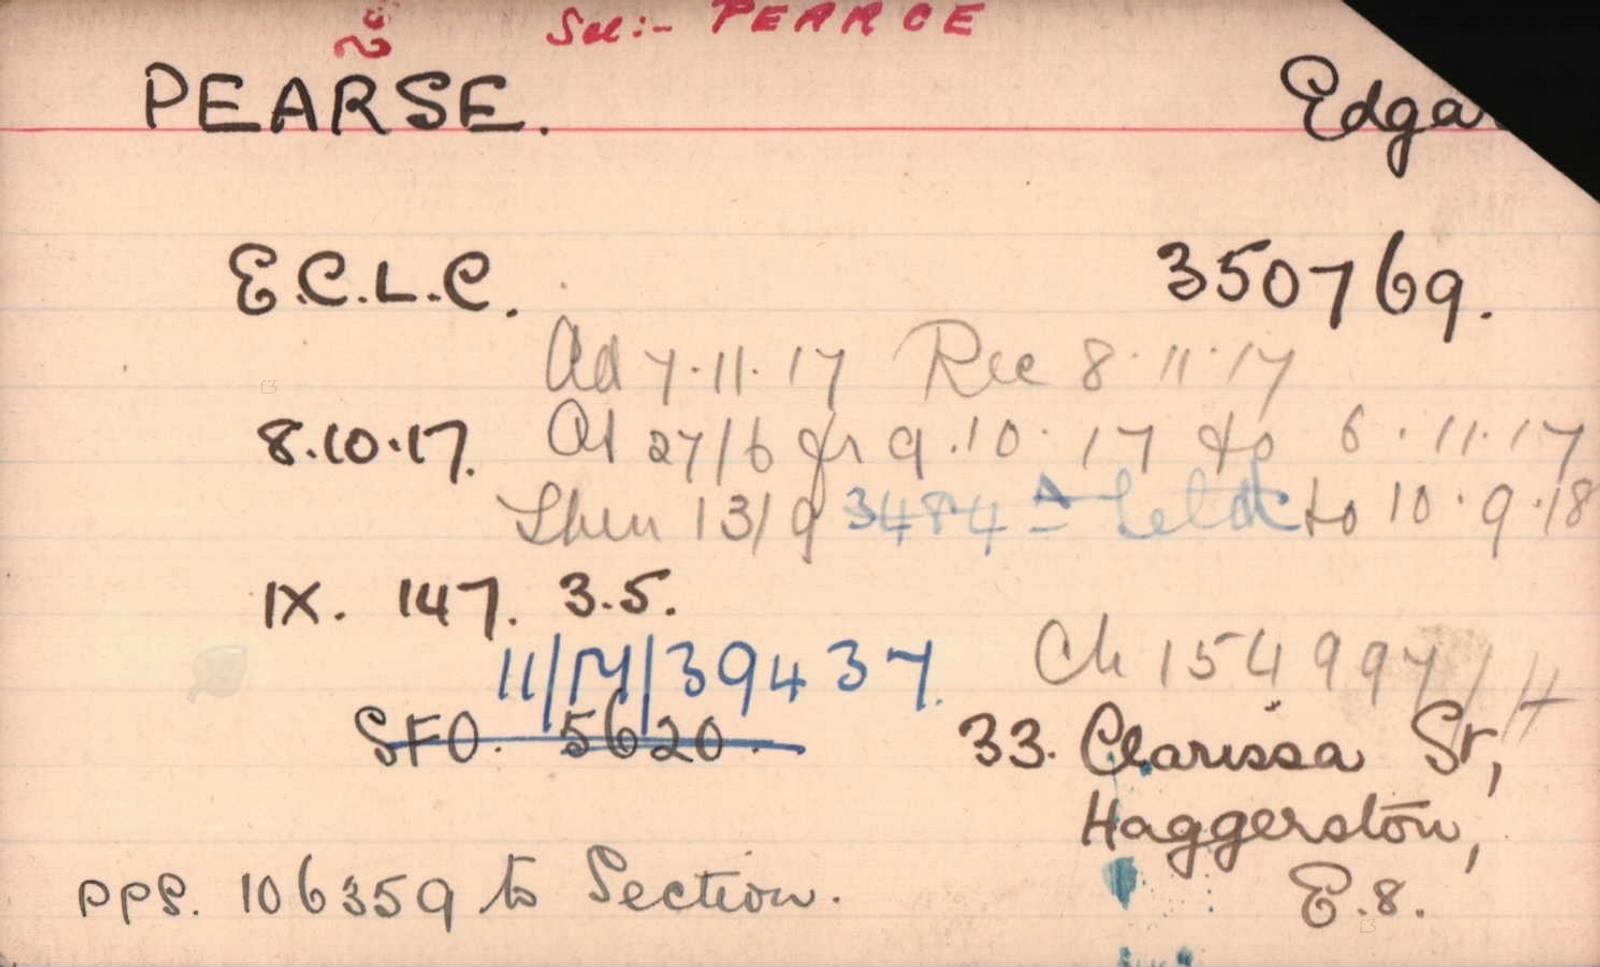 See:- PEARCE
PEARSE. Edga
E.C.L.C. 350769.
Ad 7.11.17 Rec 8.11.17
8.10.17. At 27/6 fr 9.10.17 to 6.11.17
Then 13/9 3484 to 10.9.18
IX. 147. 3.5.
11/M/39437. Ch 154997/H
SFO. 5620. 33. Clarissa St,
Haggerston,
pps. 106359 to Section. E.8.